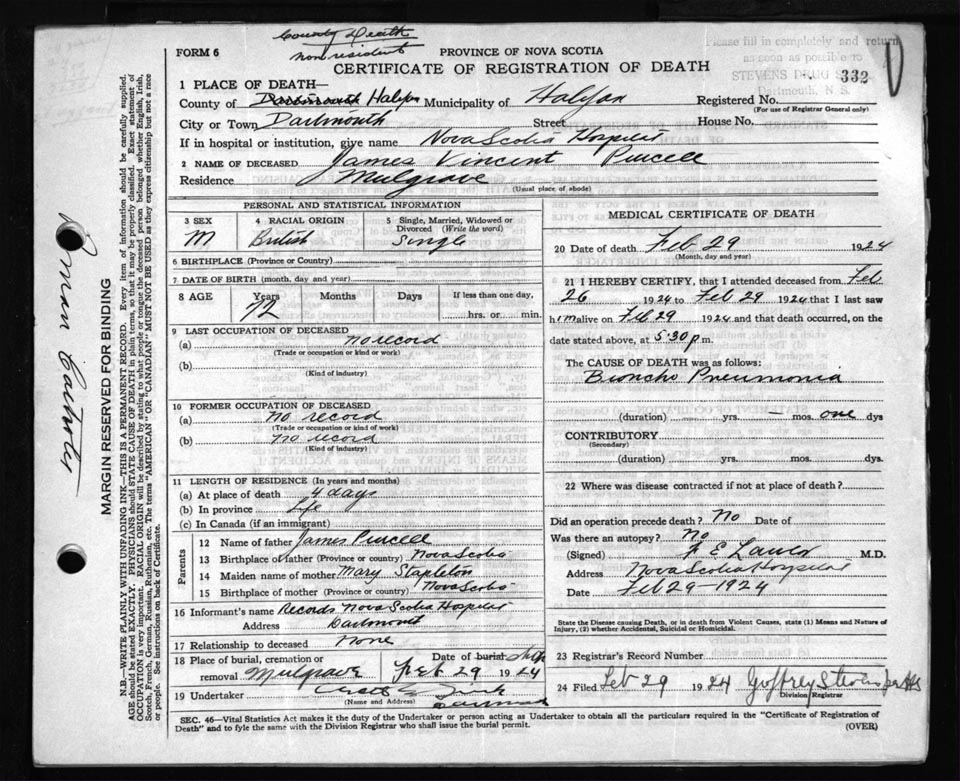 County Death
non resident
FORM 6
PROVINCE OF NOVA SCOTIA
CERTIFICATE OF REGISTRATION OF DEATH
Please fill in completely and return
as soon as possible to
STEVENS DRUG
Dartmouth, N. S.
332
1 PLACE OF DEATH—
County of Dartmouth Halifax Municipality of Halifax Registered No.
(For use of Registrar General only)
City or Town Dartmouth Street House No.
If in hospital or institution, give name Nova Scotia Hospital
2 NAME OF DECEASED James Vincent Purcell
Residence Mulgrave
(Usual place of abode)
PERSONAL AND STATISTICAL INFORMATION
3 SEX 4 RACIAL ORIGIN 5 Single, Married, Widowed or Divorced (Write the word)
M British Single
6 BIRTHPLACE (Province or Country)
7 DATE OF BIRTH (month, day and year)
8 AGE Years Months Days If less than one day,
72 hrs. or min.
9 LAST OCCUPATION OF DECEASED
(a) no record
(Trade or occupation or kind or work)
(b)
(Kind of industry)
10 FORMER OCCUPATION OF DECEASED
(a) no record
(Trade or occupation or kind of work)
(b) no record
(Kind of industry)
11 LENGTH OF RESIDENCE (In years and months)
(a) At place of death 4 days
(b) In province Life
(c) In Canada (if an immigrant)
Parents
12 Name of father James Purcell
13 Birthplace of father (Province or country) Nova Scotia
14 Maiden name of mother Mary Stapleton
15 Birthplace of mother (Province or country) Nova Scotia
16 Informant's name Records Nova Scotia Hospital
Address Dartmouth
17 Relationship to deceased None
18 Place of burial, cremation or Date of burial
removal Mulgrave Feb 29 1924
19 Undertaker
(Name and Address)
MEDICAL CERTIFICATE OF DEATH
20 Date of death Feb 29 1924
(Month, day and year)
21 I HEREBY CERTIFY, that I attended deceased from Feb
26 1924 to Feb 29 1924 that I last saw
him alive on Feb 29 1924 and that death occurred, on
date stated above, at 5:30 p.m.
The CAUSE OF DEATH was as follows:
Broncho Pneumonia
(duration) yrs. — mos. one dys
CONTRIBUTORY
(Secondary)
(duration) yrs. mos. dys.
22 Where was disease contracted if not at place of death?
Did an operation precede death? No Date of
Was there an autopsy? No
(Signed) F E Lawlor M.D.
Address Nova Scotia Hospital
Date Feb 29—1924
State the Disease causing Death, or in death from Violent Causes, state (1) Means and Nature of
Injury, (2) whether Accidental, Suicidal or Homicidal.
23 Registrar's Record Number
24 Filed Feb 29 1924 Geoffrey Stevens
Division Registrar
SEC. 46—Vital Statistics Act makes it the duty of the Undertaker or person acting as Undertaker to obtain all the particulars required in the "Certificate of Registration of
Death" and to fyle the same with the Division Registrar who shall issue the burial permit. (OVER)
Roman Catholic
MARGIN RESERVED FOR BINDING
N.B.—WRITE PLAINLY WITH UNFADING INK—THIS IS A PERMANENT RECORD. Every item of information should be carefully supplied.
AGE should be stated EXACTLY. PHYSICIANS should STATE CAUSE OF DEATH in plain terms, so that it may be properly classified. Exact statement of
OCCUPATION is very important. RACIAL ORIGIN will be described by stating to what people or tongue the deceased person belonged whether English, Irish,
Scotch, French, German, Russian, Ruthenian, etc. The terms "AMERICAN" OR "CANADIAN" MUST NOT BE USED as they express citizenship but not a race
or people. See instructions on back of Certificate.